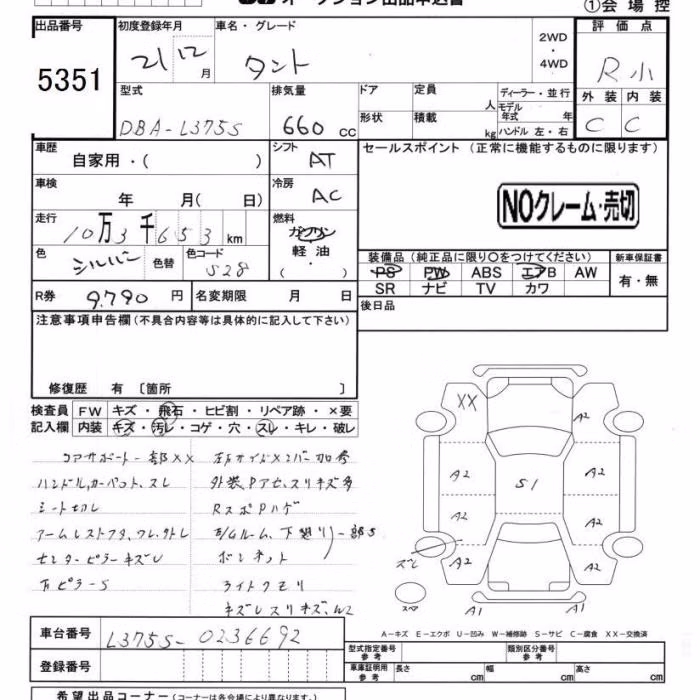 オークション出品申込書
①会場控
出品番号
5351
初度登録年月
21 12 月
車名・グレード
タント
2WD
・
4WD
評価点
R小
外装 内装
C C
型式
DBA-L375S
排気量
660 cc
ドア
定員
人
ディーラー・並行
モデル年式 年
形状
積載
kg
ハンドル 左・右
車歴
自家用・( )
シフト
AT
セールスポイント (正常に機能するものに限ります)
NOクレーム・売切
車検
年 月( 日)
冷房
AC
走行
10万3千653km
燃料
ガソリン
軽油
( )
色
シルバー
色替
色コード
S28
装備品 (純正品に限り○をつけてください)
PS PW ABS エアB AW
SR ナビ TV カワ
新車保証書
有・無
R券
9,790 円
名変期限 月 日
後日品
注意事項申告欄 (不具合内容等は具体的に記入して下さい)
修復歴 有 〔箇所 〕
検査員記入欄
FW キズ・飛石・ヒビ割・リペア跡・×要
内装 キズ・汚レ・コゲ・穴・スレ・キレ・破レ
コアサポート一部XX
ハンドル,カーペット,スレ
シート切レ
センターピラーキズレ
ピラーS
外装,Pアセ,スリキズ多
RスポPハゲ
ボンネット
ライトクモリ
キズレスリキズ,W2
XX
A2
A2
A2
A2
A2
A2
A2
A2
S1
ズレ
スペア
A1
A1
A-キズ E-エクボ U-凹み W-補修跡 S-サビ C-腐食 XX-交換済
車台番号
L375S-0236692
登録番号
型式指定番号 参考
類別区分番号 参考
車庫証明用 参考
長さ cm
幅 cm
高さ cm
希望出品コーナー (コーナーは各会場により異なります。)